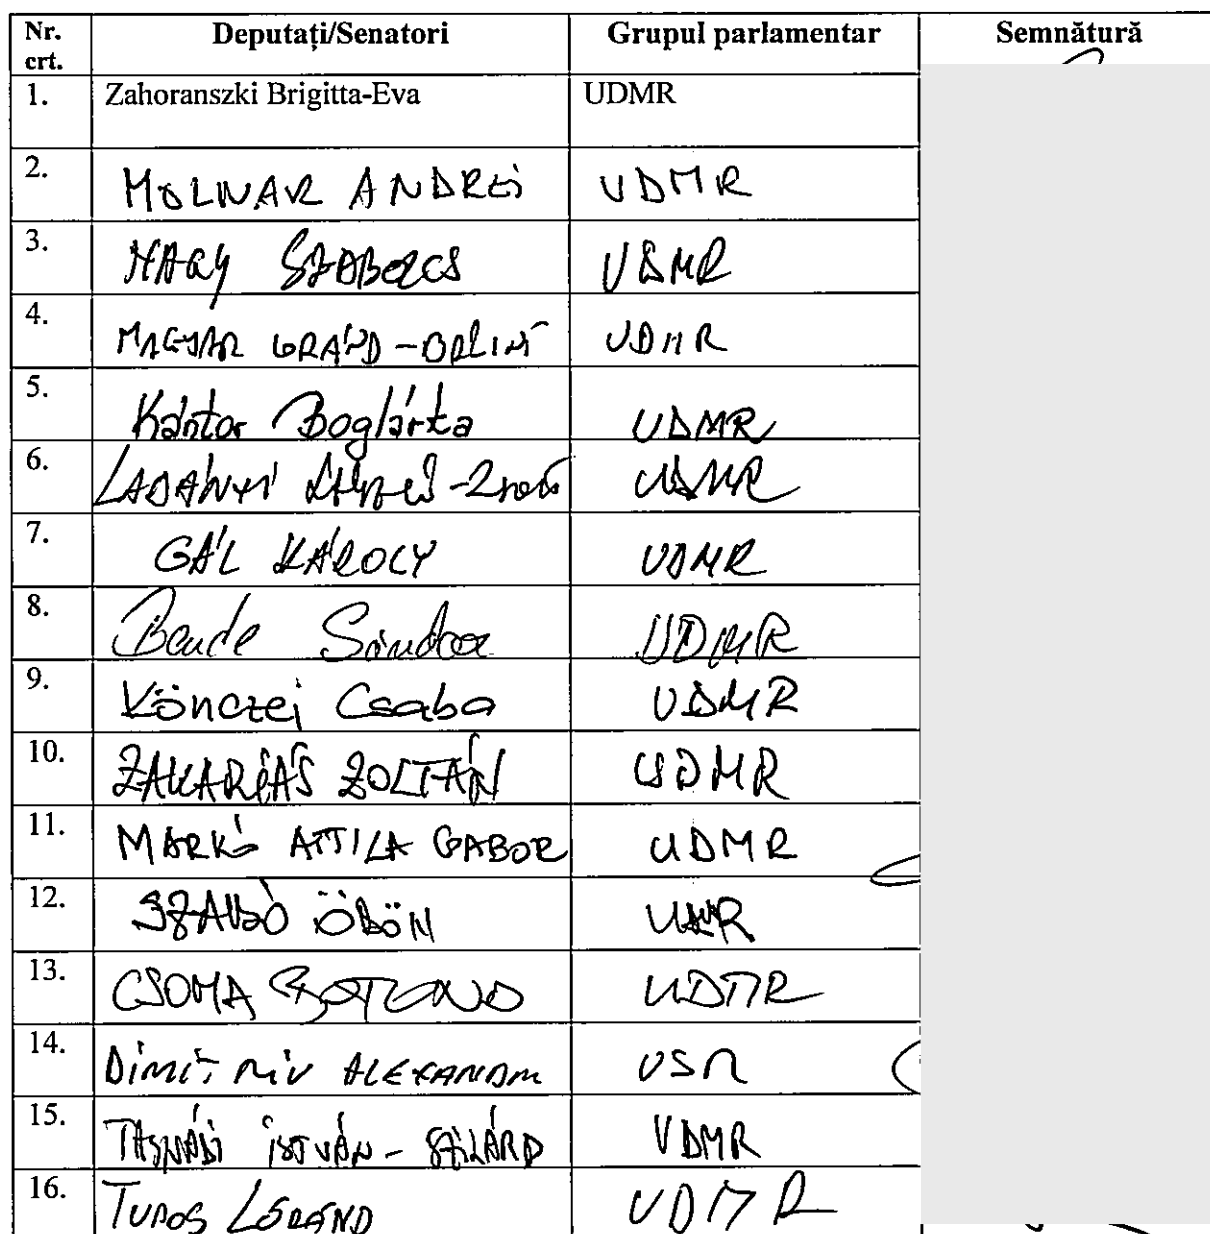 Nr. crt. Deputați/Senatori Grupul parlamentar Semnătură
1. Zahoranszki Brigitta-Eva UDMR
2. MOLNAR ANDREI UDMR
3. NAGY SZABOLCS UDMR
4. MAGYAR LORÁND-BÁLINT UDMR
5. Kántor Boglárka UDMR
6. LADÁNYI LÁSZLÓ-Zsolt UDMR
7. GÁL KÁROLY UDMR
8. Bende Sándor UDMR
9. Könczei Csaba UDMR
10. ZAKARIÁS ZOLTÁN UDMR
11. MARKÓ ATTILA GABOR UDMR
12. SZABÓ ÖDÖN UDMR
13. CSOMA BOTOND UDMR
14. DIMITRIU ALEXANDRU USR
15. TASNÁDI ISTVÁN-SZILÁRD UDMR
16. TUDOS LÓRÁND UDMR